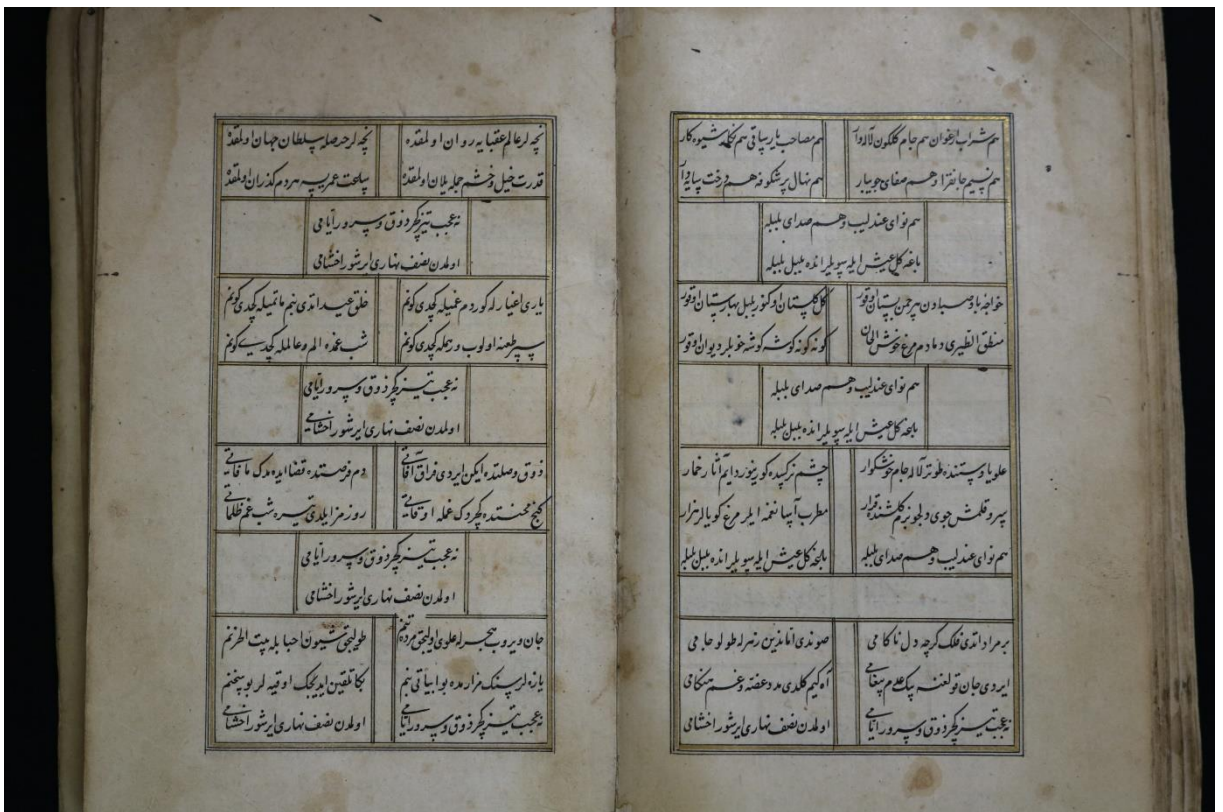 هم شراب ارغوان هم جام گلگون لاله‌وار هم مصاحب یار ساقی هم نکله شیوه کار
هم نسیم جانفزا و هم صفای جویبار هم نهال پر شکوفه هم درخت سایه‌دار
هم نوای عندلیب و هم صدای بلبله
باغده گل عیش ایله سویلر انده بلبل بلبله
خواجه باد صبادن هر چمن بستان اوقور گل گلستان اوقور بلبل بهارستان اوقور
منطق الطیری دمادم مرغ خوش الحان اوقور گونه گونه گوشه گوشه خوبلر دیوان اوقور
هم نوای عندلیب و هم صدای بلبله
باغچه گل عیش ایله سویلر انده بلبل بلبله
علویا دستنده طوتر لاله جام خوشگوار چشم نرگسده گورینور دایم آثار خمار
سرو قلمش جوی دلجو بزم گلشنده قرار مطرب آسا نغمه ایلر مرغ گویا لر هزار
هم نوای عندلیب و هم صدای بلبله باغچه گل عیش ایله سویلر انده بلبل بلبله
بر مراد اتدی فلک گرچه دل ناکامی صوندی اما ندین زهرله طولو جامی
ایردی جان قولغنه پیک عدم پیغامی آه کیم گلدی مدد غصه و غم هنگامی
نه عجب تیز گچر ذوق و سرور ایامی اولمدن نصف نهاری ایریشور اخشامی
نچه لر عالم عقبایه روان اولمقده نچه لر حرصله سلطان جهان اولمقده
قدرت خیل و حشم جمله یلان اولمقده ساعت عمر ایسه هر دم گذران اولمقده
نه عجب تیز گچر ذوق و سرور ایامی
اولمدن نصف نهاری ایریشور اخشامی
یاری اغیارله گوردم غمیله گچدی گونم خلق عید اتدی بنم ماتمیله گچدی گونم
سپر طعنه اولوب گچدی گونم شب غمده الم و عالمله گچدی گونم
نه عجب تیز گچر ذوق و سرور ایامی
اولمدن نصف نهاری ایریشور اخشامی
ذوق وصلتده ایکن ایردی فراق آفاتی دم فرصتده قضا ایده‌مدک مافاتی
کنج محنتده گچردک غمله اوقاتی روزمز ایلدی تیره شب غم ظلماتی
نه عجب تیز گچر ذوق و سرور ایامی
اولمدن نصف نهاری ایریشور اخشامی
جان ویروب هجرله علوی اولیجق مرده تنم طولیجق شیون احبابله بیت الحزنم
یازه لر سنگ مزارمده بو ابیاتی بنم بکا تلقین ایدیجک اوقیه لر بو سخنم
نه عجب تیز گچر ذوق و سرور ایامی اولمدن نصف نهاری ایریشور اخشامی